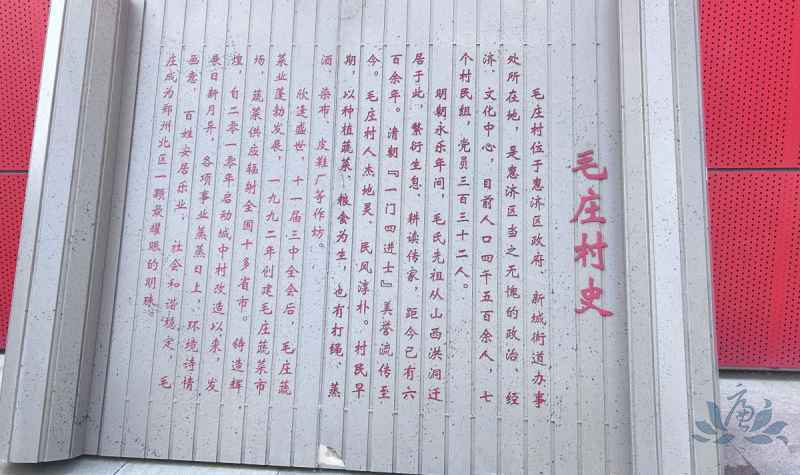 毛庄村史
毛庄村位于惠济区政府、新城街道办事
处所在地，是惠济区当之无愧的政治、经
济、文化中心，目前人口四千五百余人，七
个村民组，党员三百三十二人。
明朝永乐年间，毛氏先祖从山西洪洞迁
居于此，繁衍生息、耕读传家，距今已有六
百余年。清朝『一门四进士』美誉流传至
今。毛庄村人杰地灵、民风淳朴。村民早
期，以种植蔬菜、粮食为生，也有打绳、蒸
酒、染布、皮鞋厂等作坊。
欣逢盛世，十一届三中全会后，毛庄蔬
菜业蓬勃发展，一九九二年创建毛庄蔬菜市
场，蔬菜供应辐射全国十多省市。铸造辉
煌，自二零一零年启动城中村改造以来，发
展日新月异，各项事业蒸蒸日上，环境诗情
画意，百姓安居乐业，社会和谐稳定，毛
庄成为郑州北区一颗最耀眼的明珠。
唐